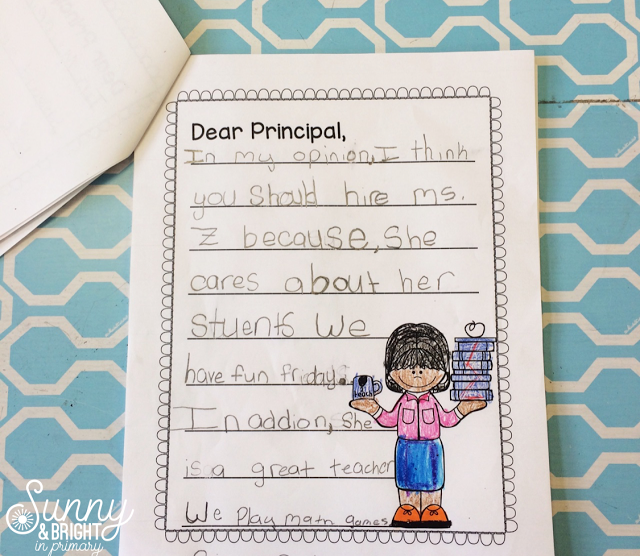 Dear Principal,
In my opinion, I think
you should hire ms.
Z because, she
cares about her
stuents We
have fun friday.
In addion, she
is a great teacher
We play math games
Sunny
& BRIGHT
in primary